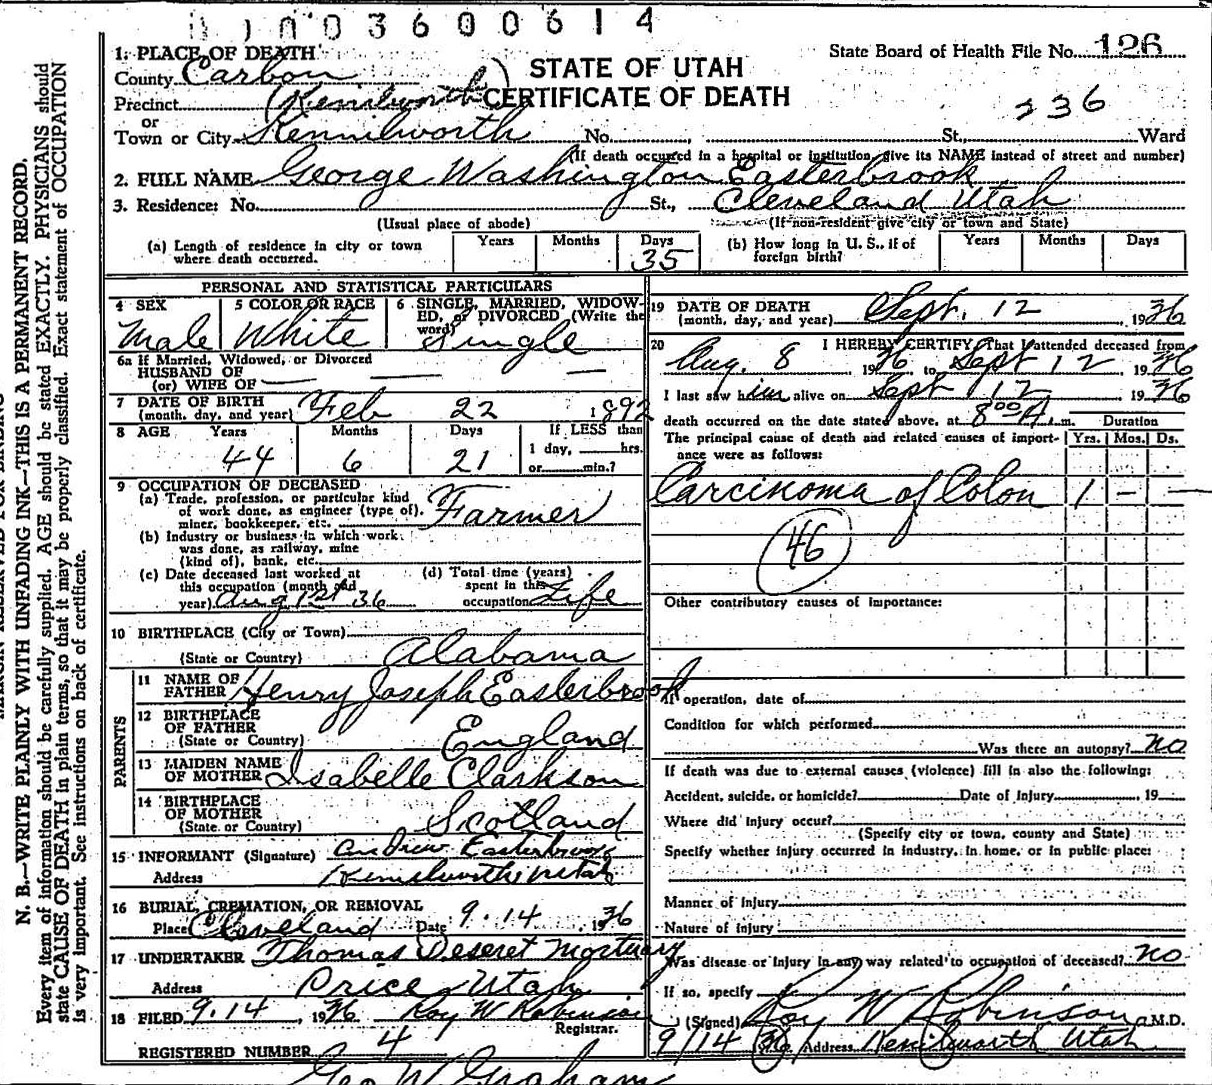 003600614
1. PLACE OF DEATH
State Board of Health File No. 126
County Carbon
STATE OF UTAH
CERTIFICATE OF DEATH
Precinct (Kenilworth)
236
or
Town or City Kenilworth No. , St., Ward
(If death occurred in a hospital or institution, give its NAME instead of street and number)
2. FULL NAME George Washington Easterbrook
3. Residence: No. St., Cleveland Utah
(Usual place of abode) (If non-resident give city or town and State)
(a) Length of residence in city or town where death occurred. Years Months Days 35
(b) How long in U. S., if of foreign birth? Years Months Days
PERSONAL AND STATISTICAL PARTICULARS
4 SEX Male
5 COLOR OR RACE White
6 SINGLE, MARRIED, WIDOWED, or DIVORCED (Write the word) Single
6a If Married, Widowed, or Divorced
HUSBAND OF
(or) WIFE OF
7 DATE OF BIRTH
(month, day, and year) Feb 22 1892
8 AGE Years Months Days If LESS than
44 6 21 1 day, hrs.
or min.?
9 OCCUPATION OF DECEASED
(a) Trade, profession, or particular kind
of work done, as engineer (type of),
miner, bookkeeper, etc. Farmer
(b) Industry or business in which work
was done, as railway, mine
(kind of), bank, etc.
(c) Date deceased last worked at
this occupation (month and
year) Aug 1st 36
(d) Total time (years)
spent in this
occupation Life
10 BIRTHPLACE (City or Town)
(State or Country) Alabama
PARENTS
11 NAME OF
FATHER Henry Joseph Easterbrook
12 BIRTHPLACE
OF FATHER
(State or Country) England
13 MAIDEN NAME
OF MOTHER Isabelle Clarkson
14 BIRTHPLACE
OF MOTHER
(State or Country) Scotland
15 INFORMANT (Signature) Andrew Easterbrook
Address Kenilworth Utah
16 BURIAL, CREMATION, OR REMOVAL
Place Cleveland Date 9.14, 1936
17 UNDERTAKER Thomas Deseret Mortuary
Address Price Utah
18 FILED 9.14, 1936 Roy W Robinson
Registrar.
REGISTERED NUMBER 4
Geo W Graham
19 DATE OF DEATH
(month, day, and year) Sept. 12 1936
20 I HEREBY CERTIFY, That I attended deceased from
Aug. 8 1936 to Sept 12 1936
I last saw him alive on Sept 12 1936
death occurred on the date stated above, at 8:00 A.m. Duration
The principal cause of death and related causes of importance were as follows: Yrs. Mos. Ds.
Carcinoma of Colon 1 - -
46
Other contributory causes of importance:
If operation, date of
Condition for which performed
Was there an autopsy? no
If death was due to external causes (violence) fill in also the following:
Accident, suicide, or homicide? Date of Injury , 19
Where did injury occur?
(Specify city or town, county and State)
Specify whether injury occurred in industry, in home, or in public place:
Manner of Injury
Nature of injury
Was disease or injury in any way related to occupation of deceased? no
If so, specify
(Signed) Roy W Robinson, M.D.
9/14 36, Address Kenilworth Utah
N. B.—WRITE PLAINLY WITH UNFADING INK—THIS IS A PERMANENT RECORD.
Every item of information should be carefully supplied. AGE should be stated EXACTLY. PHYSICIANS should
state CAUSE OF DEATH in plain terms, so that it may be properly classified. Exact statement of OCCUPATION
is very important. See instructions on back of certificate.